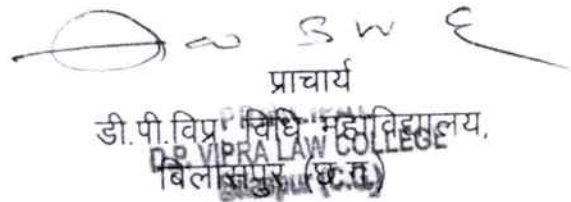 प्राचार्य
डी.पी.विप्र विधि महाविद्यालय,
D.P. VIPRA LAW COLLEGE
बिलासपुर (छ.ग.)